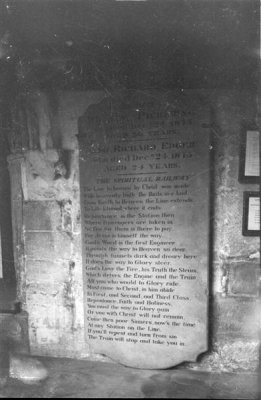 PICKERING
RICHARD EDGER
who died Decr 24 1845
AGED 24 YEARS.
THE SPIRITUAL RAILWAY
The Line to heaven by Christ was made
With heavenly truth the Rails are laid
From Earth to Heaven the Line extends
To Life Eternal where it ends
Repentance is the Station then
Where Passengers are taken in
No Fee for them is there to pay
For Jesus is himself the way
God's Word is the first Engineer
It points the way to Heaven so dear
Through tunnels dark and dreary here
It does the way to Glory steer.
God's Love the Fire, his Truth the Steam,
Which drives the Engine and the Train
All you who would to Glory ride,
Must come to Christ, in him abide
In First, and Second, and Third Class,
Repentance, Faith and Holiness,
You must the way to Glory gain
Or you with Christ will not remain
Come then poor Sinners, now's the time
At any Station on the Line.
If you'll repent and turn from sin
The Train will stop and take you in.